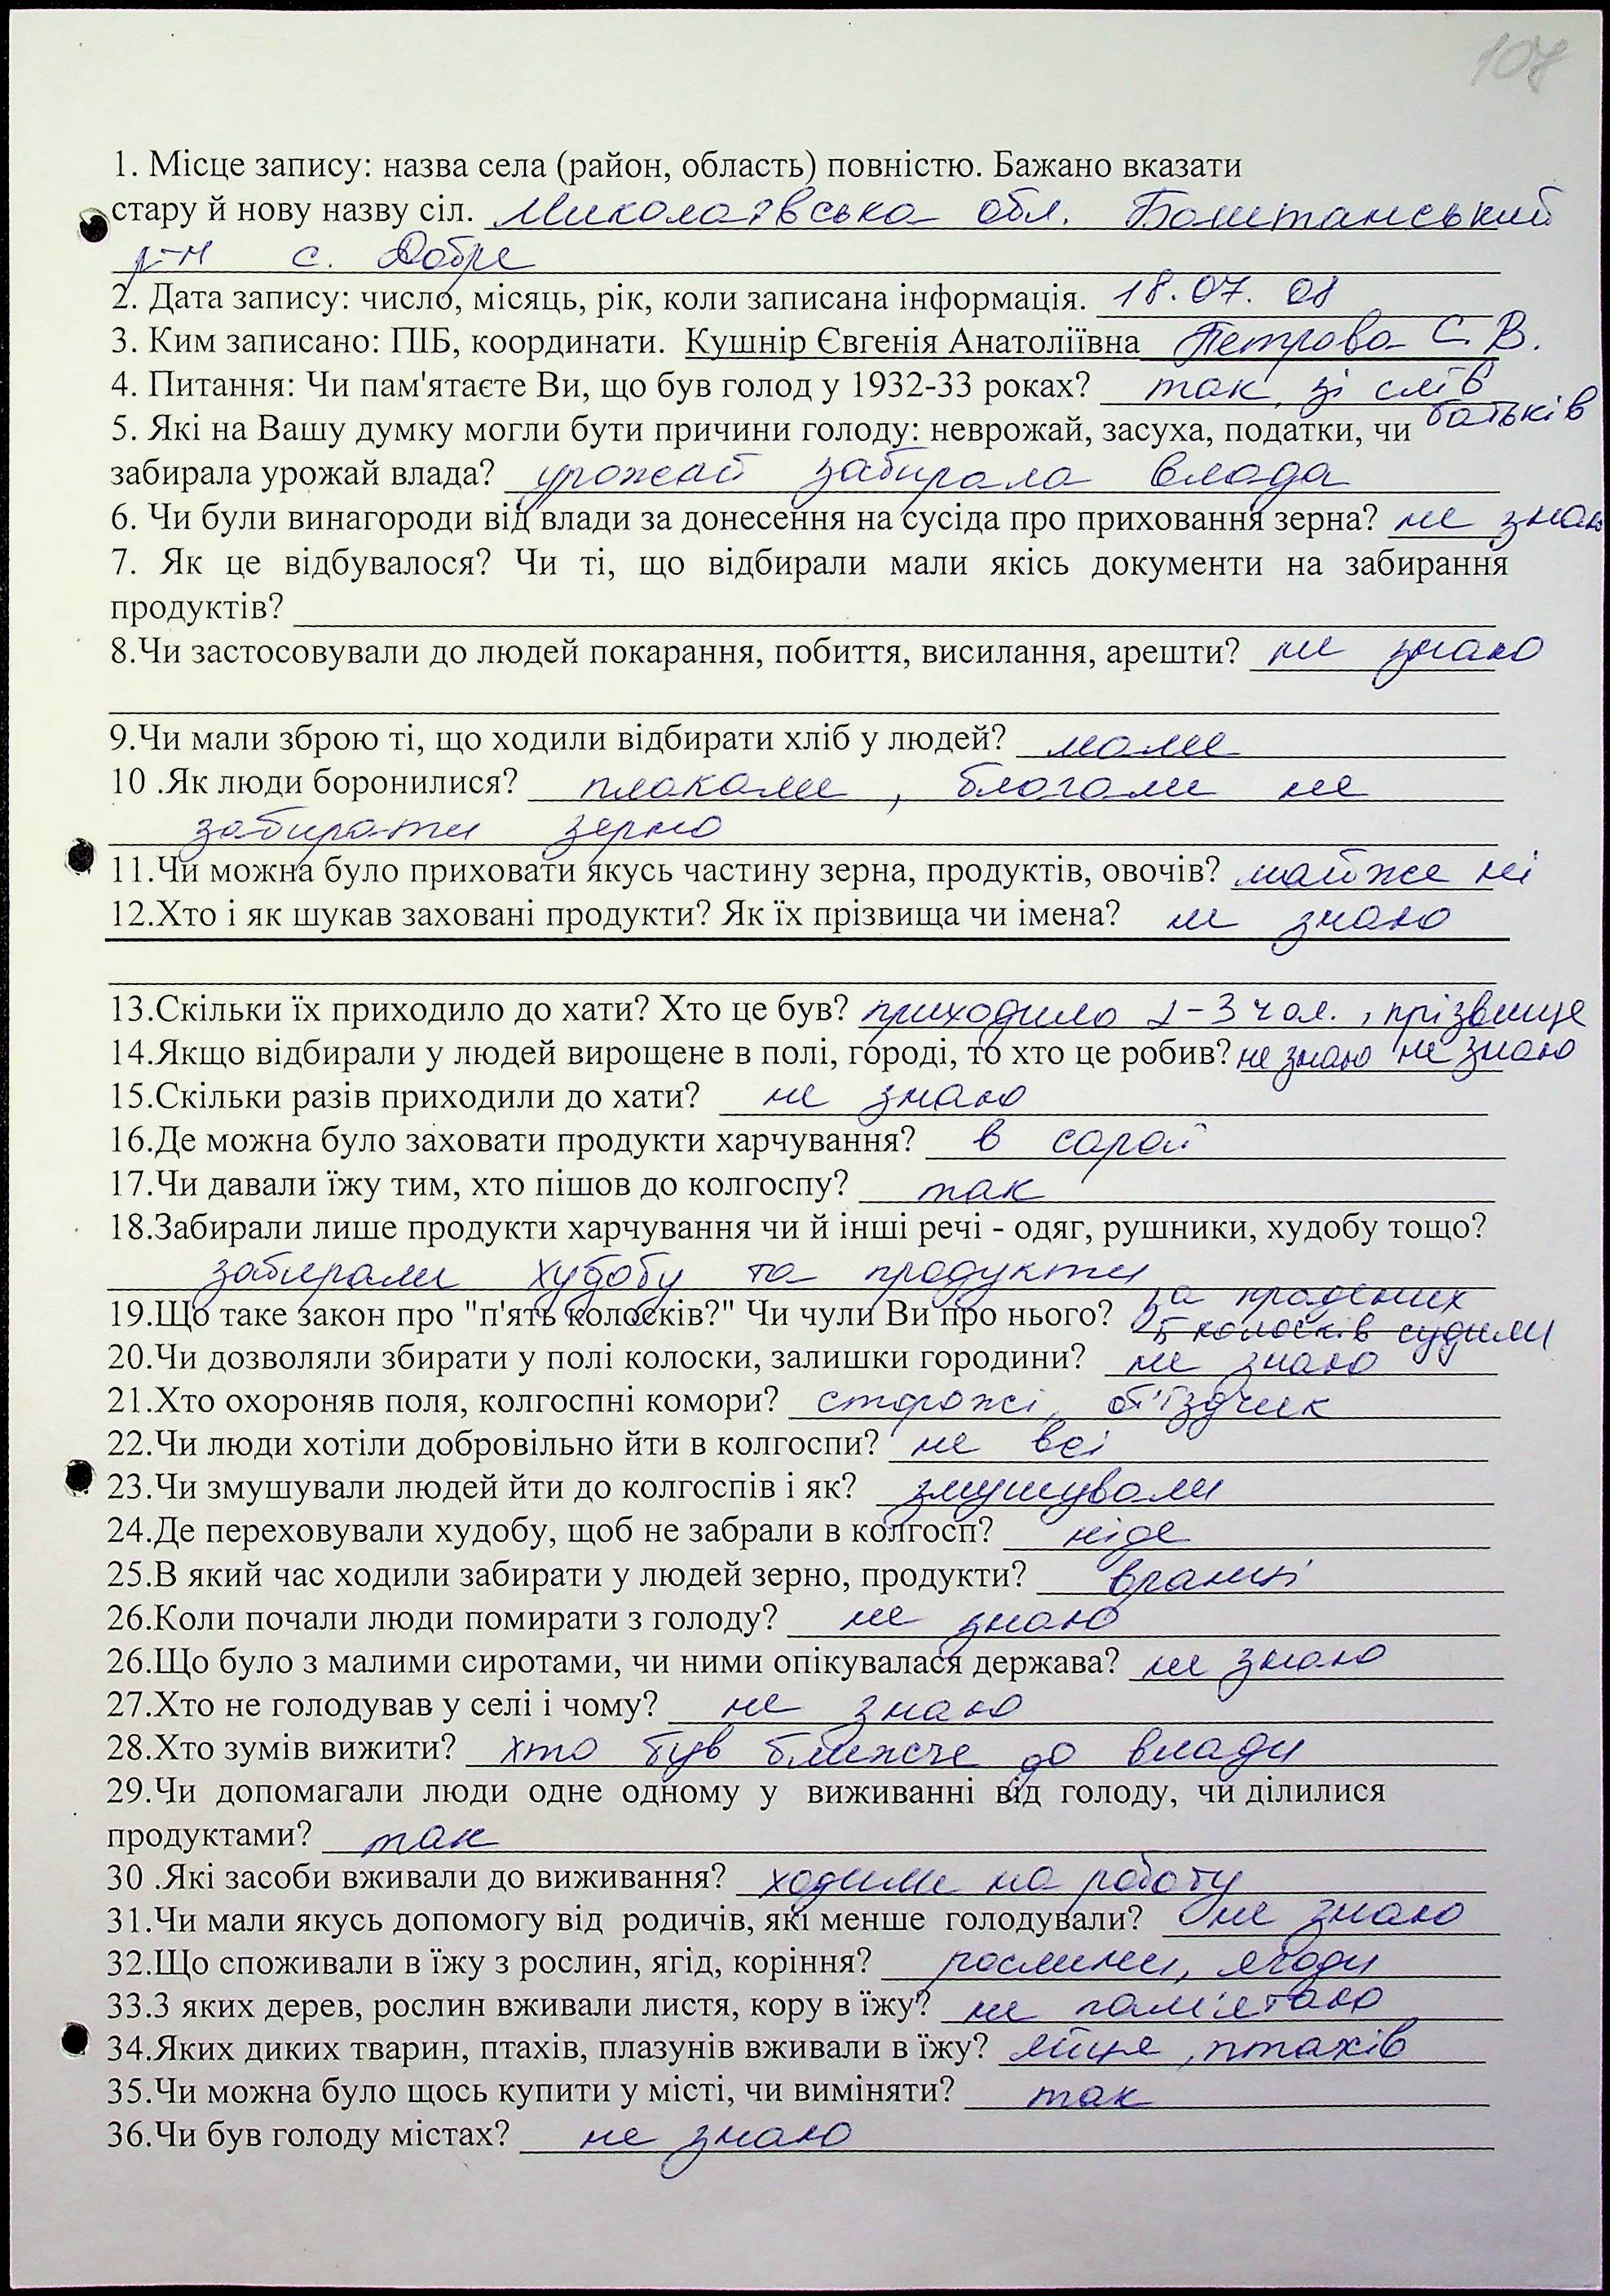 107
1. Місце запису: назва села (район, область) повністю. Бажано вказати
стару й нову назву сіл. Миколаївська обл. Баштанський
р-н с. Добре
2. Дата запису: число, місяць, рік, коли записана інформація. 18.07.08
3. Ким записано: ПІБ, координати. Кушнір Євгенія Анатоліївна Петрова С. В.
4. Питання: Чи пам'ятаєте Ви, що був голод у 1932-33 роках? так, зі слів
батьків
5. Які на Вашу думку могли бути причини голоду: неврожай, засуха, податки, чи
забирала урожай влада? урожай забирала влада
6. Чи були винагороди від влади за донесення на сусіда про приховання зерна? не знаю
7. Як це відбувалося? Чи ті, що відбирали мали якісь документи на забирання
продуктів?
8.Чи застосовували до людей покарання, побиття, висилання, арешти? не знаю
9.Чи мали зброю ті, що ходили відбирати хліб у людей? мали
10 .Як люди боронилися? плакали, благали не
забирати зерно
11.Чи можна було приховати якусь частину зерна, продуктів, овочів? майже ні
12.Хто і як шукав заховані продукти? Як їх прізвища чи імена? не знаю
13.Скільки їх приходило до хати? Хто це був? приходило 2-3 чол., прізвище
не знаю
14.Якщо відбирали у людей вирощене в полі, городі, то хто це робив? не знаю
15.Скільки разів приходили до хати? не знаю
16.Де можна було заховати продукти харчування? в сараї
17.Чи давали їжу тим, хто пішов до колгоспу? так
18.Забирали лише продукти харчування чи й інші речі - одяг, рушники, худобу тощо?
забирали худобу та продукти
19.Що таке закон про "п'ять колосків?" Чи чули Ви про нього? за крадених
5 колосків судили
20.Чи дозволяли збирати у полі колоски, залишки городини? не знаю
21.Хто охороняв поля, колгоспні комори? сторожі, об'їздчик
22.Чи люди хотіли добровільно йти в колгоспи? не всі
23.Чи змушували людей йти до колгоспів і як? змушували
24.Де переховували худобу, щоб не забрали в колгосп? ніде
25.В який час ходили забирати у людей зерно, продукти? вранці
26.Коли почали люди помирати з голоду? не знаю
26.Що було з малими сиротами, чи ними опікувалася держава? не знаю
27.Хто не голодував у селі і чому? не знаю
28.Хто зумів вижити? хто був ближче до влади
29.Чи допомагали люди одне одному у виживанні від голоду, чи ділилися
продуктами? так
30 .Які засоби вживали до виживання? ходили на роботу
31.Чи мали якусь допомогу від родичів, які менше голодували? не знаю
32.Що споживали в їжу з рослин, ягід, коріння? рослини, ягоди
33.З яких дерев, рослин вживали листя, кору в їжу? не пам'ятаю
34.Яких диких тварин, птахів, плазунів вживали в їжу? яйця, птахів
35.Чи можна було щось купити у місті, чи виміняти? так
36.Чи був голоду містах? не знаю